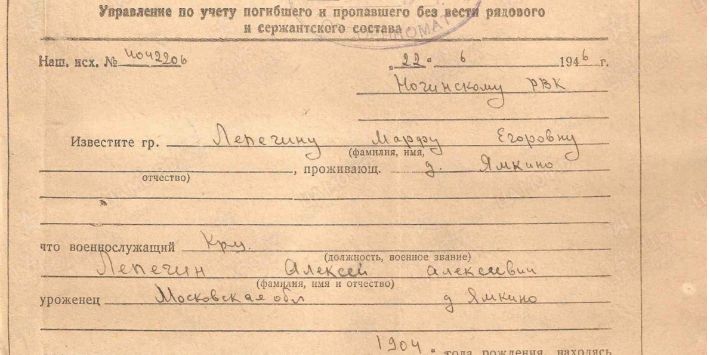 Управление по учету погибшего и пропавшего без вести рядового
и сержантского состава
Наш. исх. № 4042206 "22" 6 1946 г.
Ногинскому РВК
Известите гр. Лепечину Марфу Егоровну
(фамилия, имя,
отчество) , проживающ. д. Ямкино
что военнослужащий Кр.
(должность, военное звание)
Лепечин Алексей Алексеевич
(фамилия, имя и отчество)
уроженец Московская обл д Ямкино
1904 года рождения, находясь